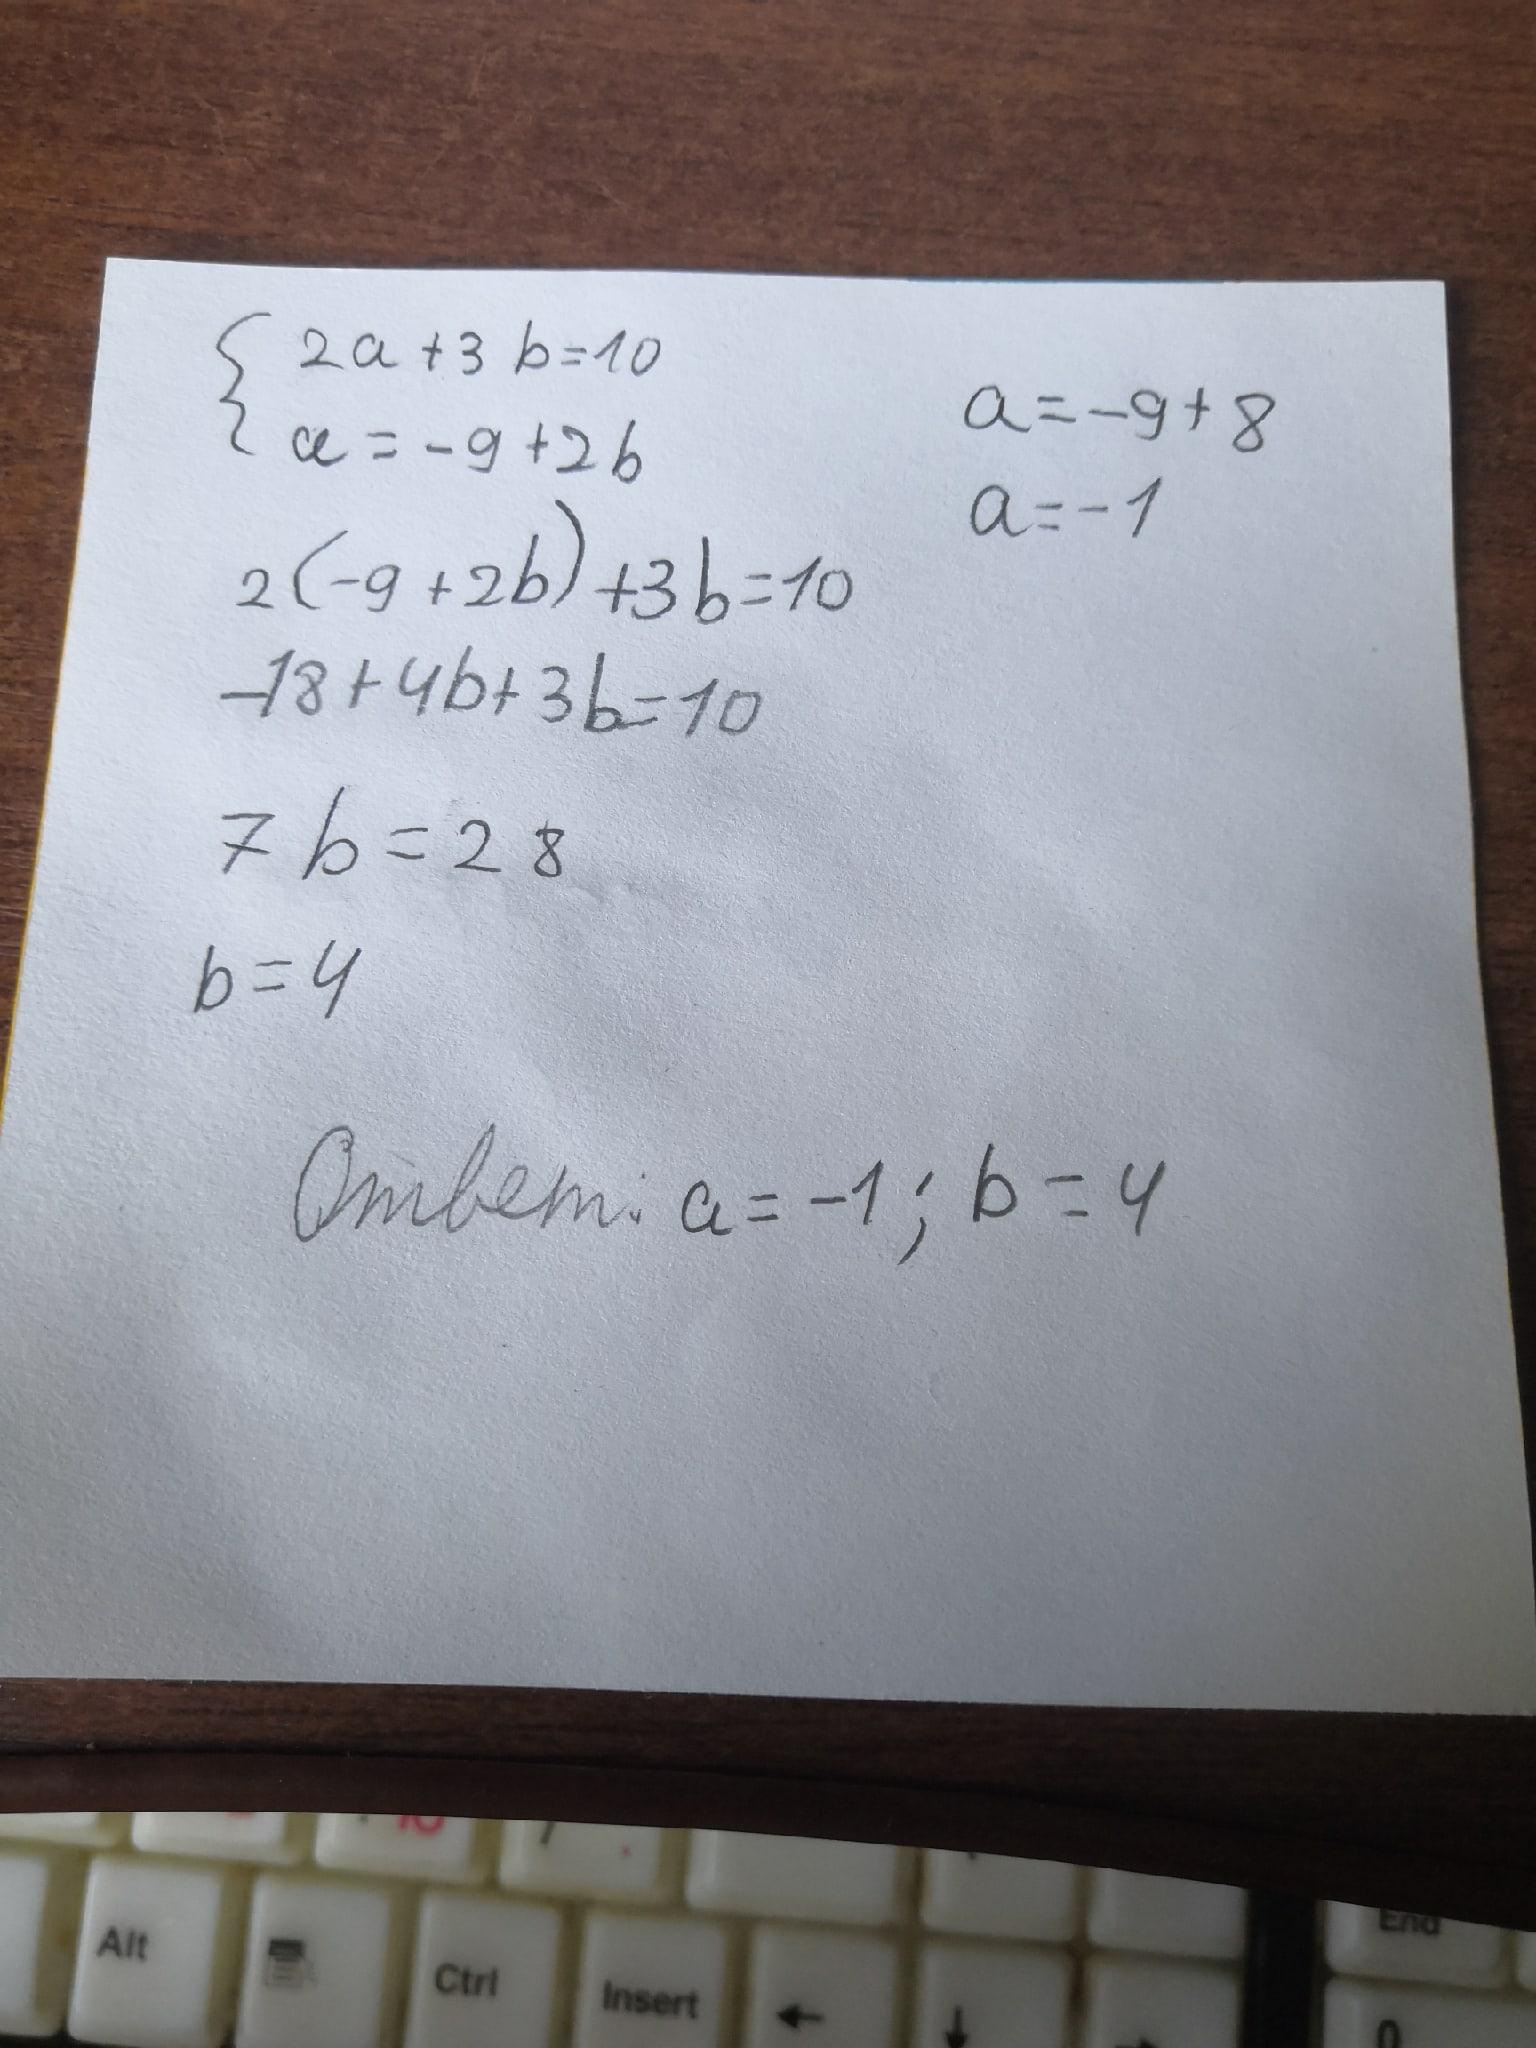 2a+3b=10
a=-9+2b
2(-9+2b)+3b=10
-18+4b+3b=10
7b=28
b=4
a=-9+8
a=-1
Ответ: a=-1; b=4
Alt
Ctrl
Insert
←
↓
End
0